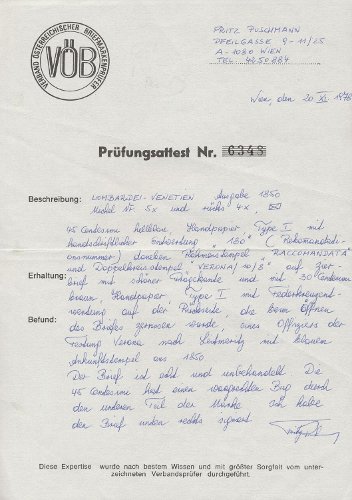 VERBAND ÖSTERREICHISCHER BRIEFMARKENPRÜFER
VÖB
FRITZ PUSCHMANN
PFEILGASSE 9-11/25
A-1080 WIEN
TEL 4250884
Wien, den 20 XI. 1978
Prüfungsattest Nr. 6343
Beschreibung: LOMBARDEI-VENETIEN Ausgabe 1850
Michel Nr. 5x und rücks 4x,
45 Centesimi hellblau, Handpapier Type I mit
handschriftlicher Entwertung "180" (Rekomandations
nummer) daneben Rahmenstempel "RACCOMANDATA"
und Doppelkreisstempel "VERONA 10/8" auf Zier
Erhaltung: brief mit schöner Frankatur und mit 30 Centesimi
braun, Handpapier Type I mit Federkreuzent-
wertung auf der Rückseite, die beim Öffnen
Befund: des Briefes zerrissen wurde, eines Offiziers der
Festung Verona nach Leitmeritz mit blauem
Ankunftsstempel aus 1850
Der Brief ist echt und unbehandelt. Die
45 Centesimi hat einen waagrechten Bug durch
den unteren Teil der Marke. Ich habe
den Brief unten rechts signiert
Diese Expertise wurde nach bestem Wissen und mit größter Sorgfalt vom unter-
zeichneten Verbandsprüfer durchgeführt.